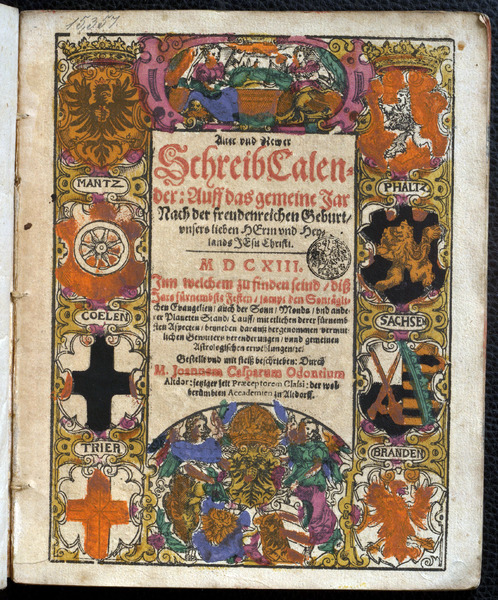 15,357
Alter vnd Newer
SchreibCalen-
der: Auff das gemeine Jar
Nach der freudenreichen Geburt/
vnsers lieben HErrn vnd Hey
lands JEsu Christi.
M D C XIII.
Jnn welchem zu finden seind / diß
Jars fürnembste Festen / sampt den Sontägli-
chen Evangelien / auch der Sonn / Monds / vnd ande-
rer Planeten Stand / Lauff / mit etlichen derer fürnemb-
sten Aspecten / beneben daraus hergenommen vermut-
lichen Gewitters verenderungen / vnnd gemeinen
Astrologischen erwehlungen /
Gestellt vnd mit fleiß beschrieben: Durch
M. Joannem Casparum Odontium
Altdor: jetziger zeit Præceptorem Classi: der wol
berümbten Accademien zu Altdorff.
MANTZ
COELEN
TRIER
PHALTZ
SACHSE
BRANDEN